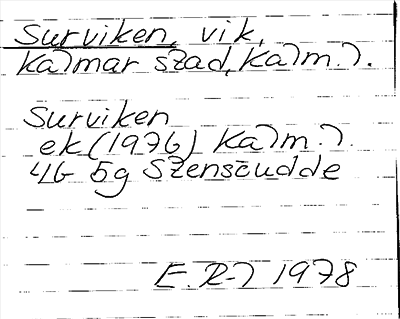 Surviken, vik,
Kalmar stad, Kalm. l.
Surviken
ek (1976) Kalm. l.
4G 5g Stensudde
E. R-l 1978